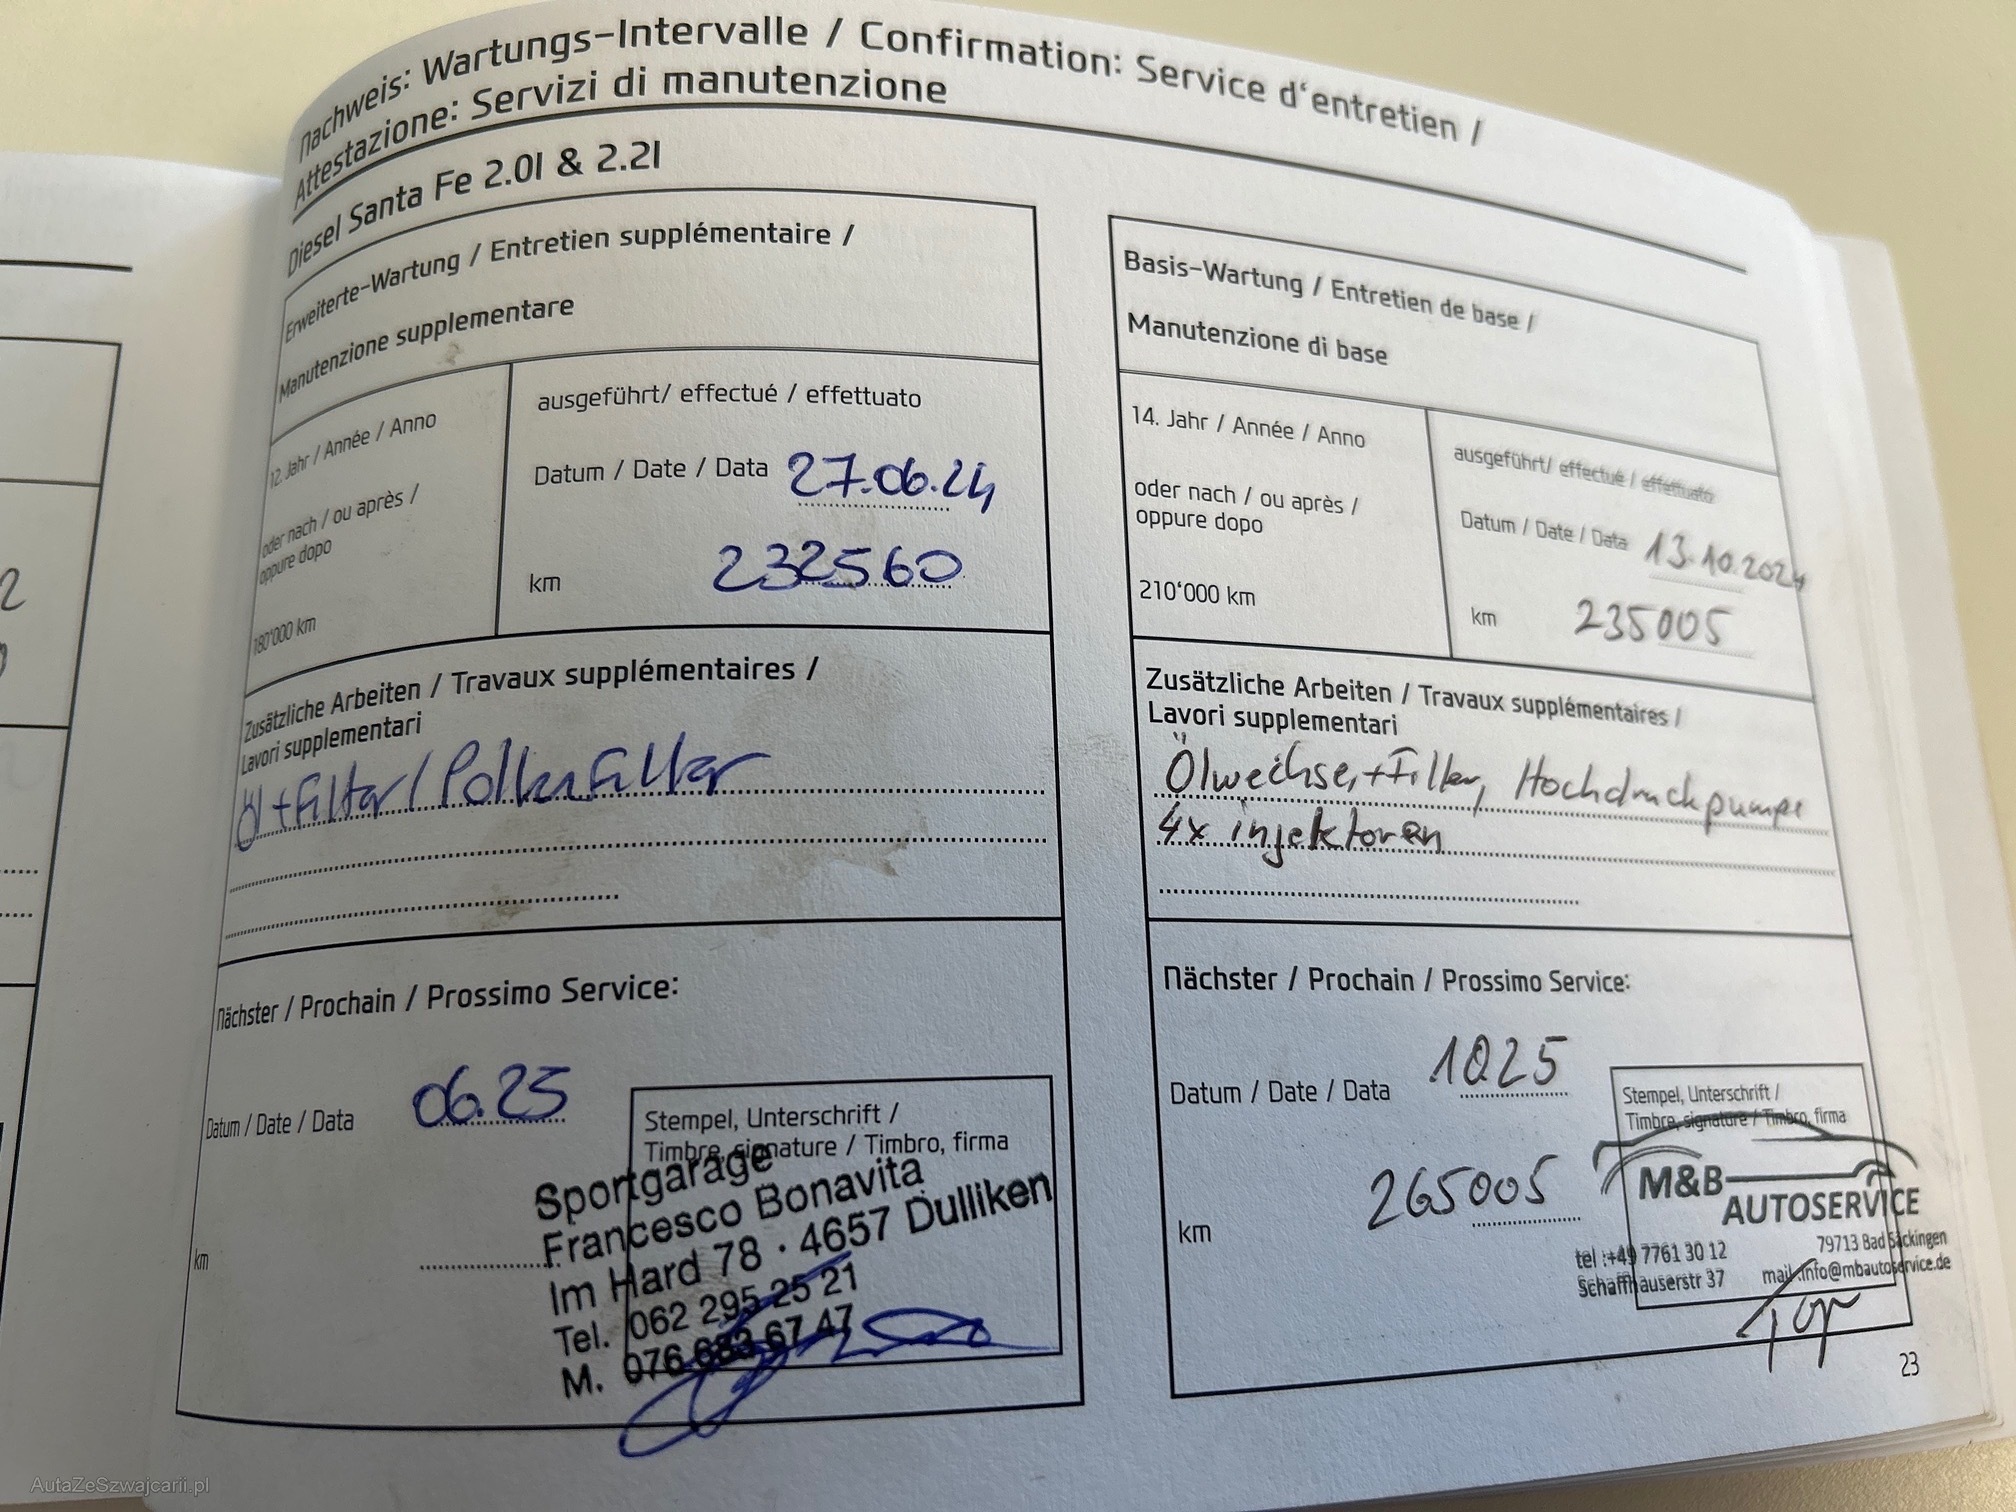 Nachweis: Wartungs-Intervalle / Confirmation: Service d'entretien /
Attestazione: Servizi di manutenzione
Diesel Santa Fe 2.0l & 2.2l
Erweiterte-Wartung / Entretien supplémentaire /
Manutenzione supplementare
12. Jahr / Année / Anno
oder nach / ou après /
oppure dopo
180'000 km
ausgeführt/ effectué / effettuato
Datum / Date / Data 27.06.24
km 232560
Zusätzliche Arbeiten / Travaux supplémentaires /
Lavori supplementari
Öl+Filter/Pollenfilter
Nächster / Prochain / Prossimo Service:
Datum / Date / Data 06.25
km
Stempel, Unterschrift /
Timbre, signature / Timbro, firma
Sportgarage
Francesco Bonavita
Im Hard 78 · 4657 Dulliken
Tel. 062 295 25 21
M. 076 683 67 47
Basis-Wartung / Entretien de base /
Manutenzione di base
14. Jahr / Année / Anno
oder nach / ou après /
oppure dopo
210'000 km
ausgeführt/ effectué / effettuato
Datum / Date / Data 13.10.2024
km 235005
Zusätzliche Arbeiten / Travaux supplémentaires /
Lavori supplementari
Ölwechsel+Filter, Hochdruckpumpe
4x injektoren
Nächster / Prochain / Prossimo Service:
Datum / Date / Data 10.25
km 265005
Stempel, Unterschrift /
Timbre, signature / Timbro, firma
M&B
AUTOSERVICE
tel :+49 7761 30 12 79713 Bad Säckingen
Schaffhauserstr 37 mail :info@mbautoservice.de
23
AutaZeSzwajcarii.pl